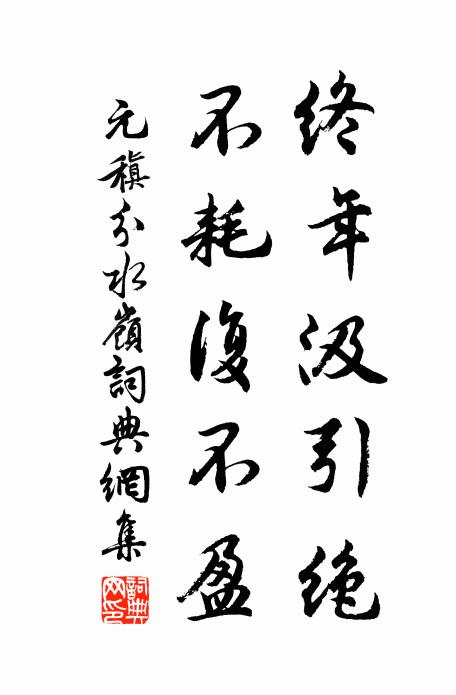 終年汲引絶
不耗復不盈
元稹分水嶺詞典網集
詞典網印